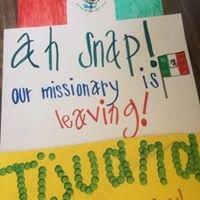 ah snap!
our missionary is
leaving!
Tijuana